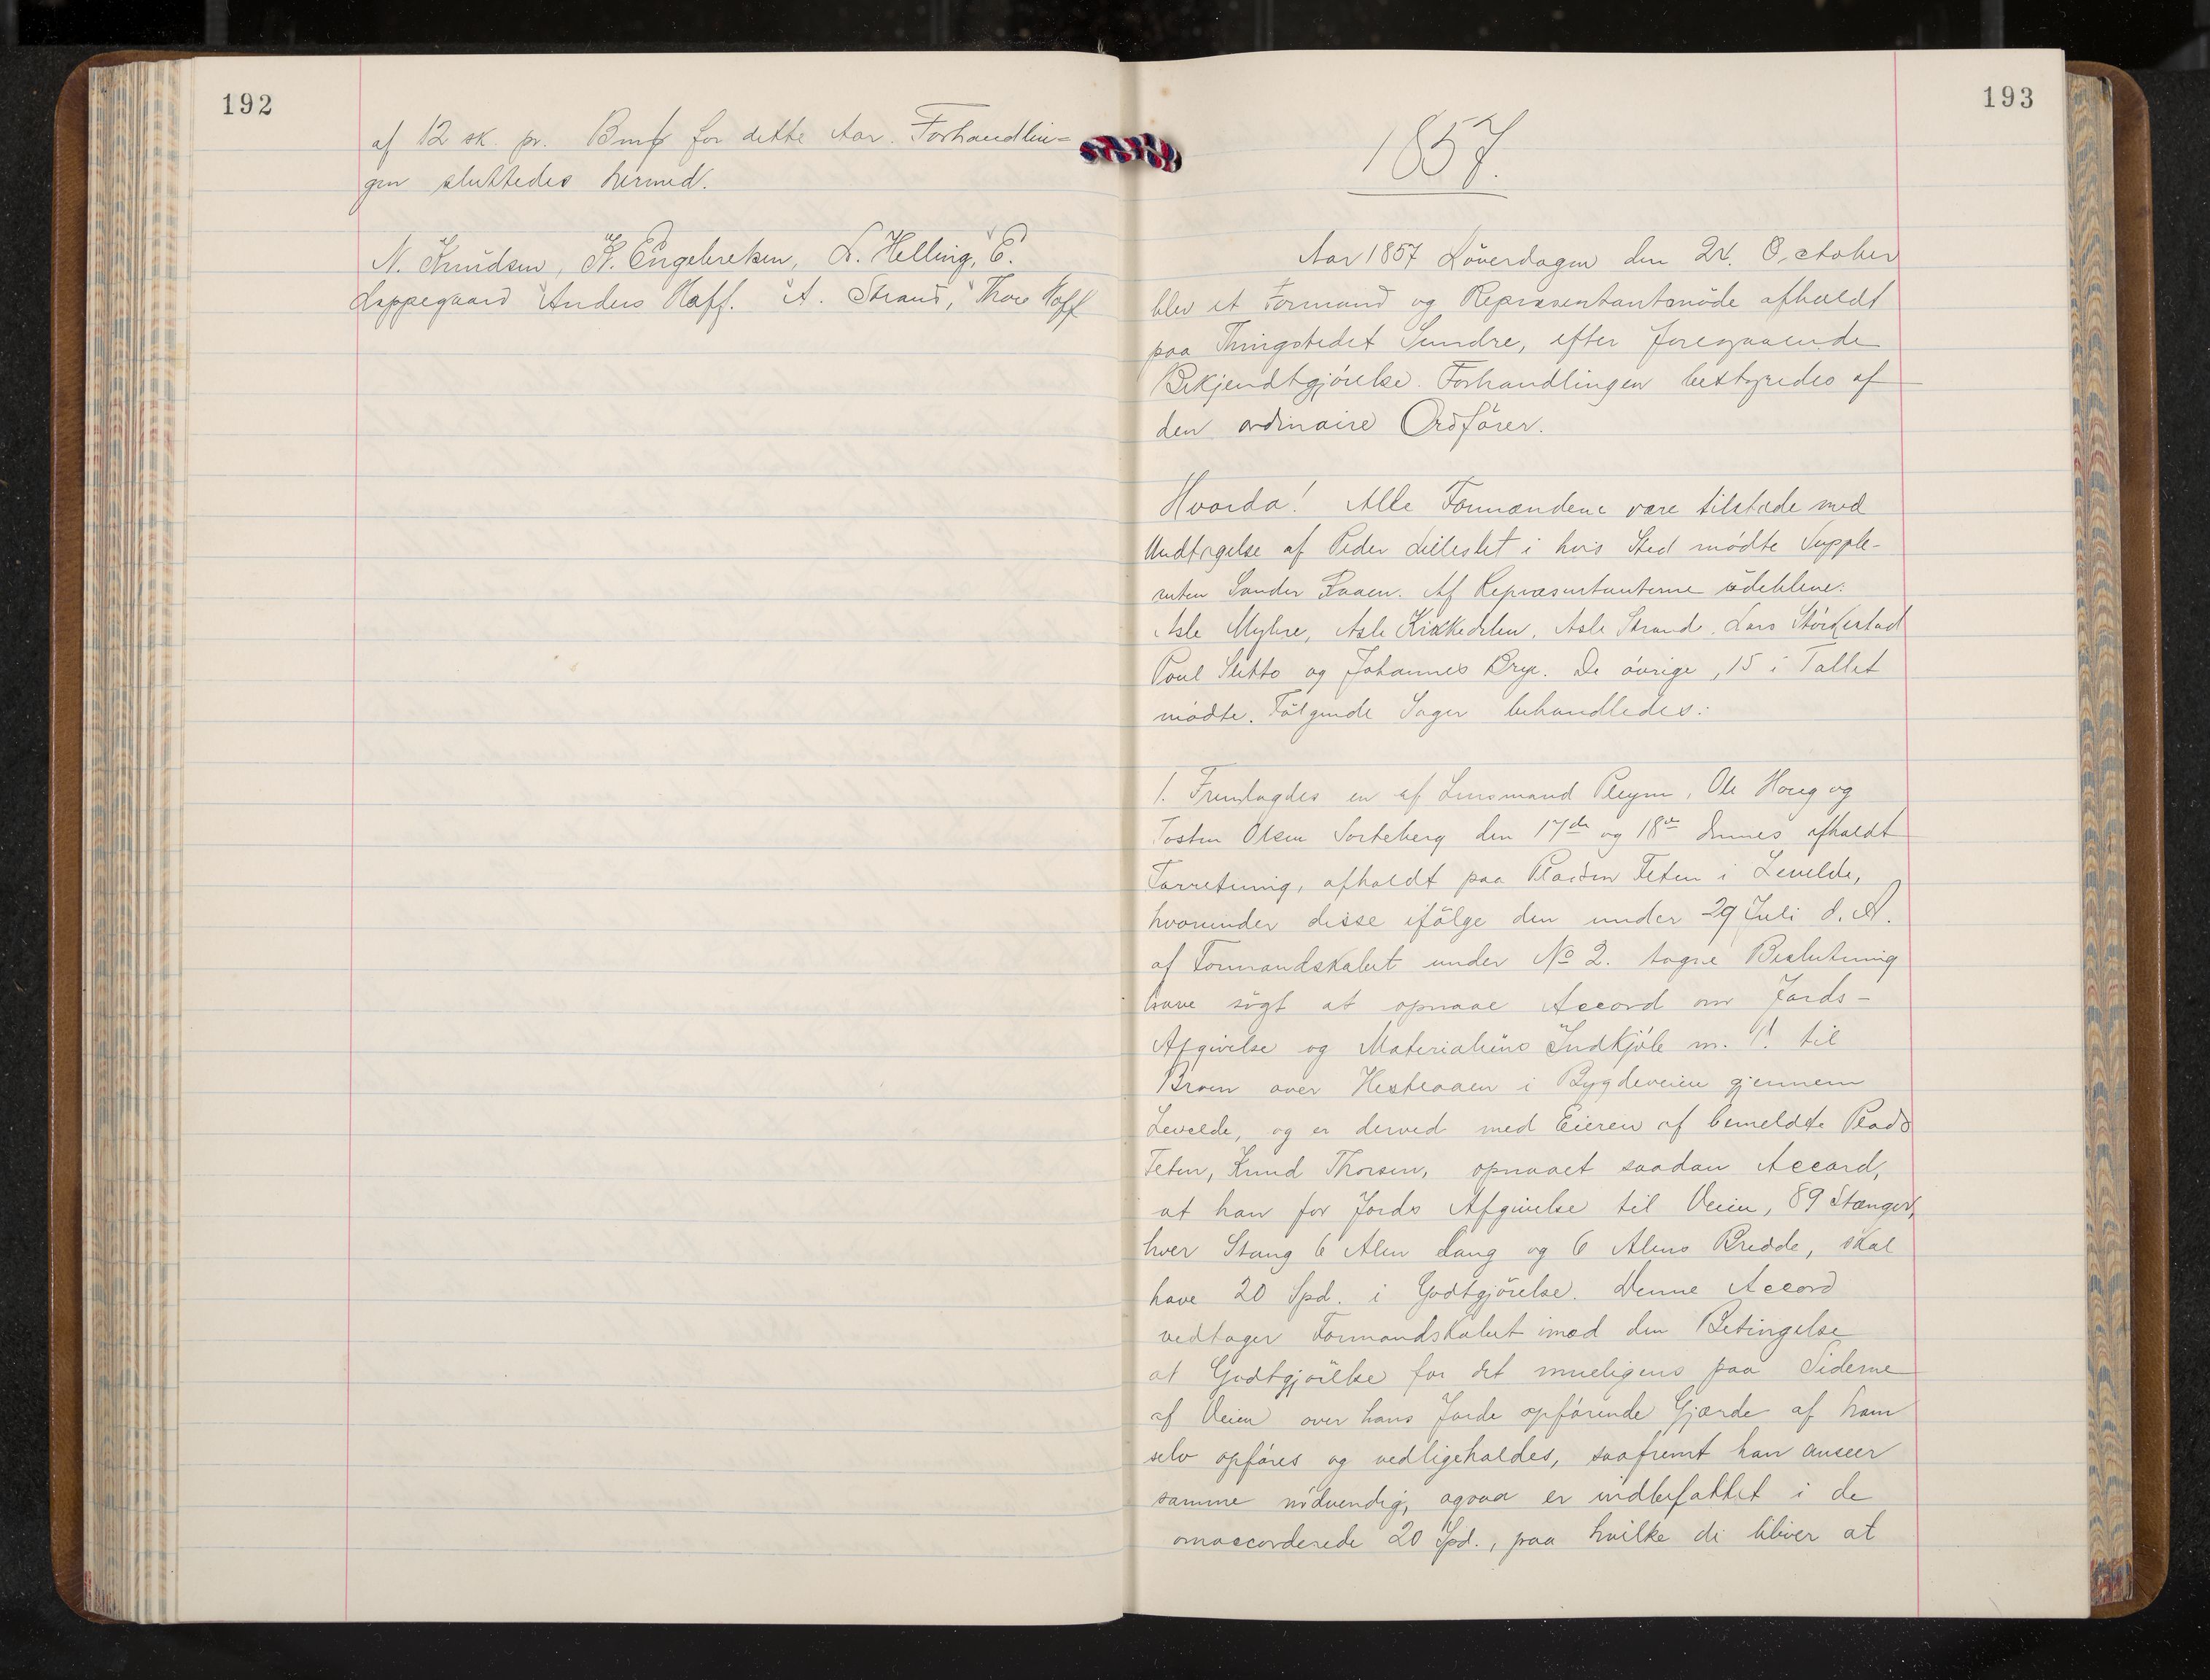 192
af 12 sk. pr. Bmf for dette Aar. Forhandlin=
gen sluttedes hermed.
N. Knudsen, K. Engebretsen, L. Helling, E.
Lappegaard Anders Haff. A. Strand, Thore Hoff
193
1857.
Aar 1857 Löverdagen den 24. October
blev et Formand og Repræsentantmöde afholdt
paa Thingstedet Sundre, efter foregaaende
Bekjendtgjörelse. Forhandlingen bestyredes af
den ordinaire Ordförer.
Hvorda! Alle Formændene vare tilstede med
Undtagelse af Peder i hvis Sted mödte Supple-
anten Sander Raaen. Af Repræsentanterne udebleve:
Asle Myhre, Asle Kirkedelen, Asle Strand, Lars
Poul Sletto og Johannes Brye. De övrige, 15 i Tallet
mödte. Fölgende Sager behandledes:
1. Fremlagdes en af Lensmand Pleym, Ole Houg og
Tosten Olsen Sorteberg den 17de og 18de dennes afholdt
Forretning, afholdt paa Pladsen Feten i Levelde,
hvorunder disse ifölge den under 29 Juli d. A.
af Formandskabet under No 2. tagne Beslutning
have sögt at opnaae Accord om Jords-
Afgivelse og Materialiers Indkjöb m. V. til
Broen over Hesteaaen i Bygdeveien gjennem
Levelde, og er derved med Eieren af bemeldte Plads
Feten, Knud Thorsen, opnaaet saadan Accord,
at han for Jords Afgivelse til Veien, 89 Stænger,
hver Stang 6 Alen lang og 6 Alens Bredde, skal
have 20 Spd. i Godtgjörelse. Denne Accord
vedtager Formandskabet imod den Betingelse
at Godtgjörelse for det mueligens paa Siderne
af Veien over hans Jorde opförende Gjærde af ham
selv opföres og vedligeholdes, saafremt han anseer
samme nödvendig, ogsaa er indbefattet i de
omaccorderede 20 Spd., paa hvilke de bliver at